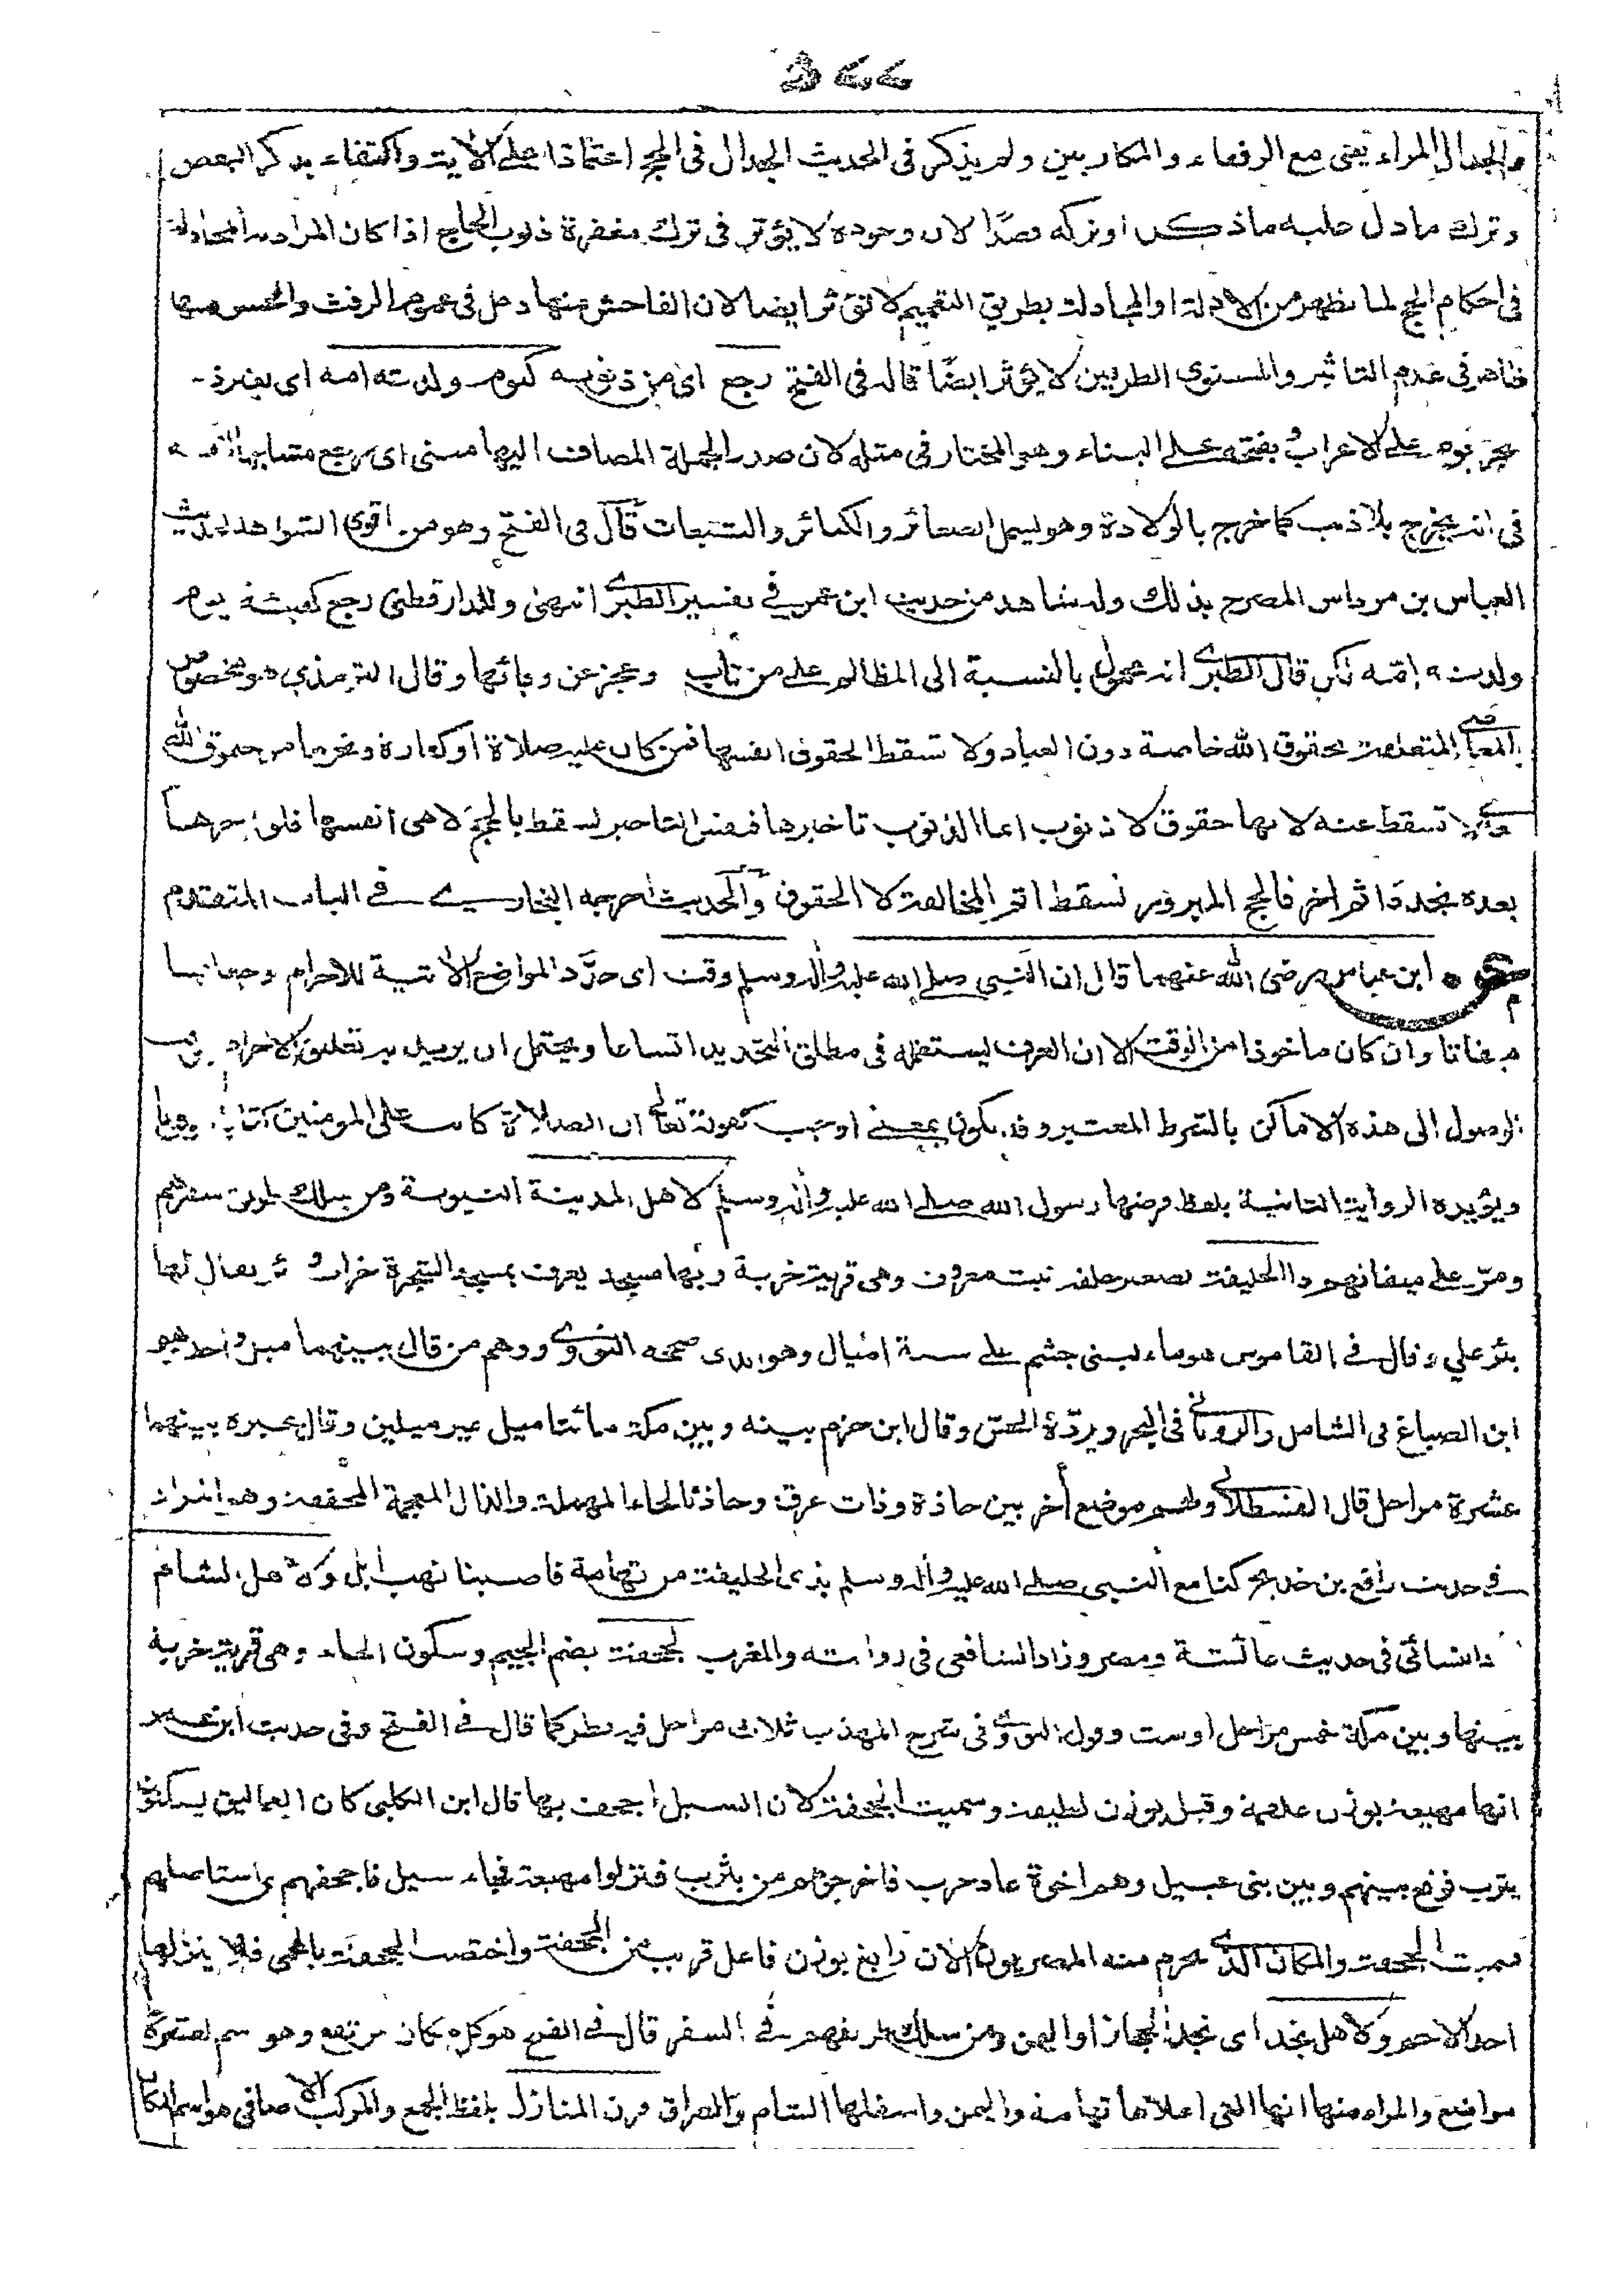 والجدال المراء يعنى مع الرفقاء والمكاريين ولم يذكر فى الحديث الجدال فى الحج اعتمادا على الآية واكتفاء بذكر البعض
وترك ما دل عليه ماذكر او تركه قصدًا لان وجوده لا يؤثر فى ترك مغفرة ذنوب الحاج اذا كان المراد به المجادلة
فى احكام الحج لما يظهر من الادلة او المجادلة بطريق التعميم لا تؤثر ايضا لان الفاحش منها دخل فى عموم الرفث والحسن منها
ظاهر فى عدم التاثير والمستوى الطرفين لا يؤثر ايضًا قاله فى الفتح رجع اى من ذنوبه كيوم ولدته امه اى
بجر يوم على الاعراب وبفتحه على البناء وهو المختار فى مثله لان صدر الجملة المضاف اليها مبنى اى رجع مشابها
فى انه يخرج بلا ذنب كما خرج بالولادة وهو يشمل الصغائر والكبائر والتبعات قال فى الفتح وهو من اقوى الشواهد لحديث
العباس بن مرداس المصرح بذلك وله شاهد من حديث ابن عمر فى تفسير الطبرى انتهى وللدارقطنى رجع كهيئته يوم
ولدته امّه لكن قال الطبرى انه محمول بالنسبة الى المظالم على من تاب وعجز عن وفائها وقال الترمذي هو مخصوص
بالمعاصى المتعلقة بحقوق الله خاصة دون العباد ولا تسقط الحقوق انفسها فمن كان عليه صلاة او كفارة ونحوها من حقوق الله
تسقط عنه لانها حقوق لا ذنوب انما الذنوب تاخيرها فنفس التاخير يسقط بالحج لا هى انفسها فلو اخرها
بعده تجدد اثم اخر فالحج المبرور يسقط اثم المخالفة لا الحقوق والحديث اخرجه البخارى فى الباب المتقدم
ابن عباس رضى الله عنهما قال ان النبى صلى الله عليه واله وسلم وقت اى حدّد المواضع الاتية للاحرام وجعلها
ميقاتا وان كان ماخوذا من الوقت الا ان العرف يستعمله فى مطلق التحديد اتساعا ويحتمل ان يريد به تعليق الاحرام
الوصول الى هذه الاماكن بالشرط المعتبر وقد يكون بمعنى اوجب كقوله تعالى ان الصلاة كانت على المومنين كتابا موقوتا
ويؤيده الرواية الثانية بلفظ فرضها رسول الله صلى الله عليه واله وسلم لاهل المدينة النبوية ومن سلك طريق سفرهم
ومرّ على ميقاتهم ذا الحليفة تصغير حلفة نبت معروف وهى قرية خربة وبها مسجد يعرف بمسجد الشجرة خراب وبئر يقال لها
بئر علي وقال فى القاموس هو ماء لبنى جشم على ستة اميال وهو الذى صححه النووى ووهم من قال بينهما ميل واحد هو
ابن الصباغ فى الشامل والرويانى فى البحر ويردّه الحسّ وقال ابن حزم بينه وبين مكة مائتا ميل غير ميلين وقال غيره بينهما
عشرة مراحل قال القسطلانى وطسم موضع أخر بين حاذة وذات عرق وحاذة بالحاء المهملة والذال المعجمة المخففة وهو المراد
فى حديث رافع بن خديج كنا مع النبى صلى الله عليه واله وسلم بذى الحليفة من تهامة فاصبنا نهب ابل ولاهل الشام
النسائى فى حديث عائشة ومصر وزاد الشافعى فى روايته والمغرب الجحفة بضم الجيم وسكون الحاء وهى قرية خربة
بينها وبين مكة خمس مراحل او ست وقول النووى فى شرح المهذب ثلاث مراحل فيه نظر كما قال فى الفتح وفى حديث ابن عمر
انها مهيعة بوزن علقمة وقيل بوزن لطيفة وسميت الجحفة لان السيل اجحف بها قال ابن الكلبى كان العماليق يسكنون
يثرب فوقع بينهم وبين بنى عبيل وهم اخوة عاد حرب فاخرجوهم من يثرب فنزلوا مهيعة فجاء سيل فاجحفهم اى استاصلهم
فسميت الجحفة والمكان الذى يحرم منه المصريون الآن رابغ بوزن فاعل قريب من الجحفة واختصت الجحفة بالحمى فلا ينزلها
احد الا حم ولاهل نجد اى نجد الحجاز او اليمن ومن سلك طريقهم فى السفر قال فى الفتح هو كل مكان مرتفع وهو اسم لعشرة
مواضع والمراد منها انها التى اعلاها تهامة واليمن واسفلها الشام والعراق قرن المنازل بلفظ الجمع والمركب الاضافى هو اسم المكان